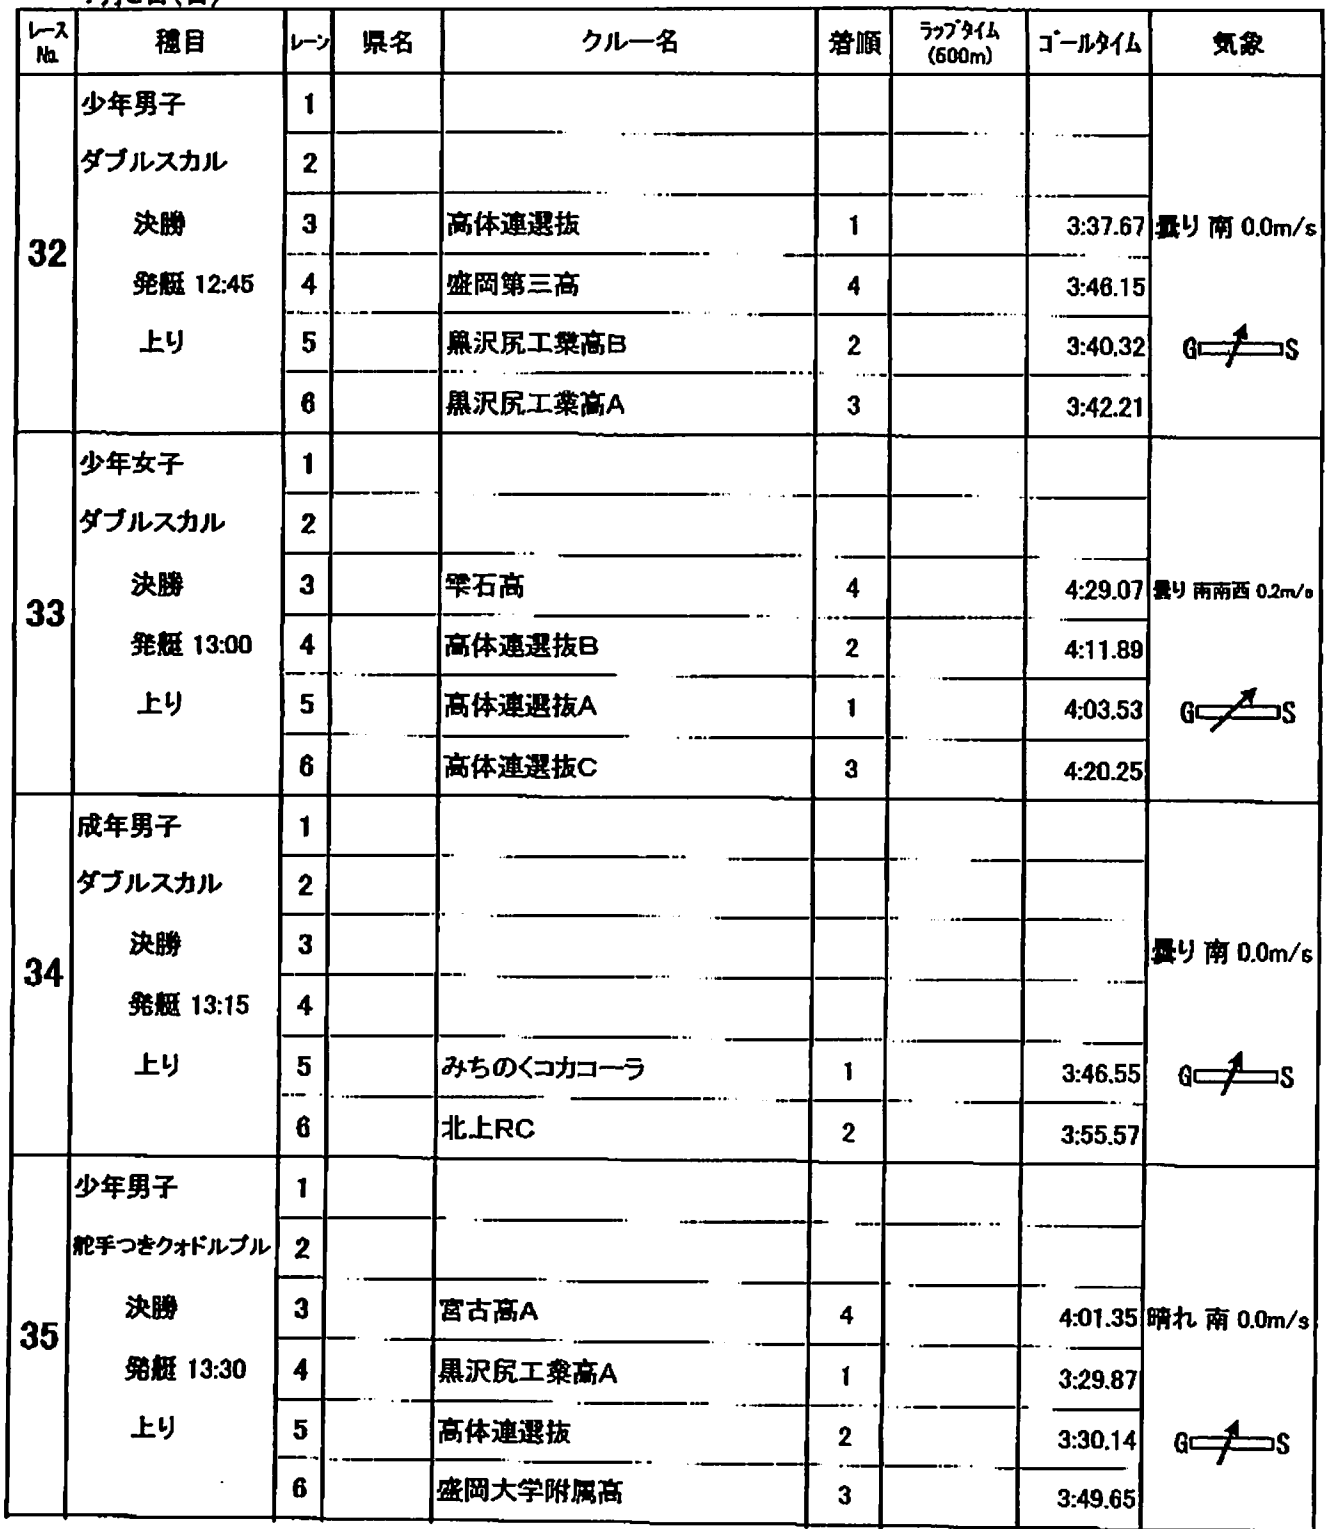 レース No. 種目 レーン 県名 クルー名 着順 ラップタイム (500m) ゴールタイム 気象
32
少年男子 1
ダブルスカル 2
決勝 3 高体連選抜 1 3:37.67 曇り 南 0.0m/s
発艇 12:45 4 盛岡第三高 4 3:46.15
上り 5 黒沢尻工業高B 2 3:40.32 G S
6 黒沢尻工業高A 3 3:42.21
33
少年女子 1
ダブルスカル 2
決勝 3 雫石高 4 4:29.07 曇り 南南西 0.2m/s
発艇 13:00 4 高体連選抜B 2 4:11.89
上り 5 高体連選抜A 1 4:03.53 G S
6 高体連選抜C 3 4:20.25
34
成年男子 1
ダブルスカル 2
決勝 3 曇り 南 0.0m/s
発艇 13:15 4
上り 5 みちのくコカコーラ 1 3:46.55 G S
6 北上RC 2 3:55.57
35
少年男子 1
舵手つきクォドルプル 2
決勝 3 宮古高A 4 4:01.35 晴れ 南 0.0m/s
発艇 13:30 4 黒沢尻工業高A 1 3:29.87
上り 5 高体連選抜 2 3:30.14 G S
6 盛岡大学附属高 3 3:49.65